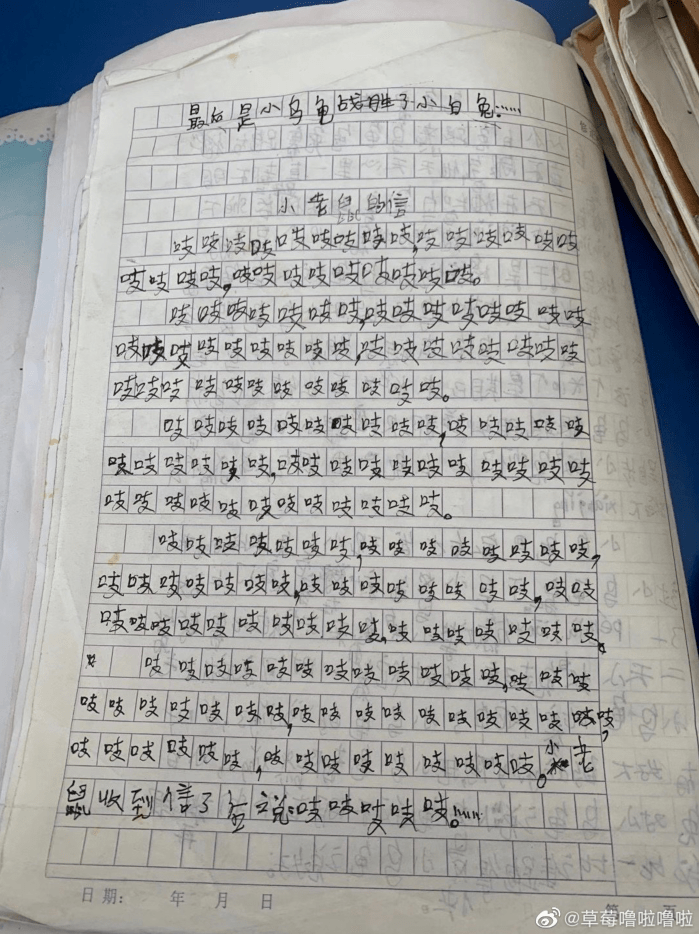 最后是小乌龟战胜了小白兔……
小老鼠的信
吱吱吱吱吱吱吱吱吱,吱吱吱吱吱吱
吱吱吱吱,吱吱吱吱吱吱吱吱吱。
吱吱吱吱吱吱吱,吱吱吱吱吱吱吱吱
吱吱吱吱吱吱吱吱吱,吱吱吱吱吱吱吱吱
吱吱吱吱吱吱吱吱吱吱吱吱。
吱吱吱吱吱吱吱吱吱吱,吱吱吱吱吱
吱吱吱吱吱吱,吱吱吱吱吱吱吱吱吱吱吱
吱吱吱吱吱吱吱吱吱吱吱吱吱。
吱吱吱吱吱吱吱,吱吱吱吱吱吱吱吱,
吱吱吱吱吱吱吱,吱吱吱吱吱吱吱吱,吱吱
吱吱吱吱吱吱吱吱吱吱,吱吱吱吱吱吱吱。
吱吱吱吱吱吱吱吱吱吱吱吱,吱吱吱
吱吱吱吱吱吱吱,吱吱吱吱吱吱吱吱吱吱吱,
吱吱吱吱吱吱,吱吱吱吱吱吱吱吱吱。小老
鼠收到信了会说:吱吱吱吱吱。……
日期: 年 月 日
第 页
@草莓噜啦噜啦